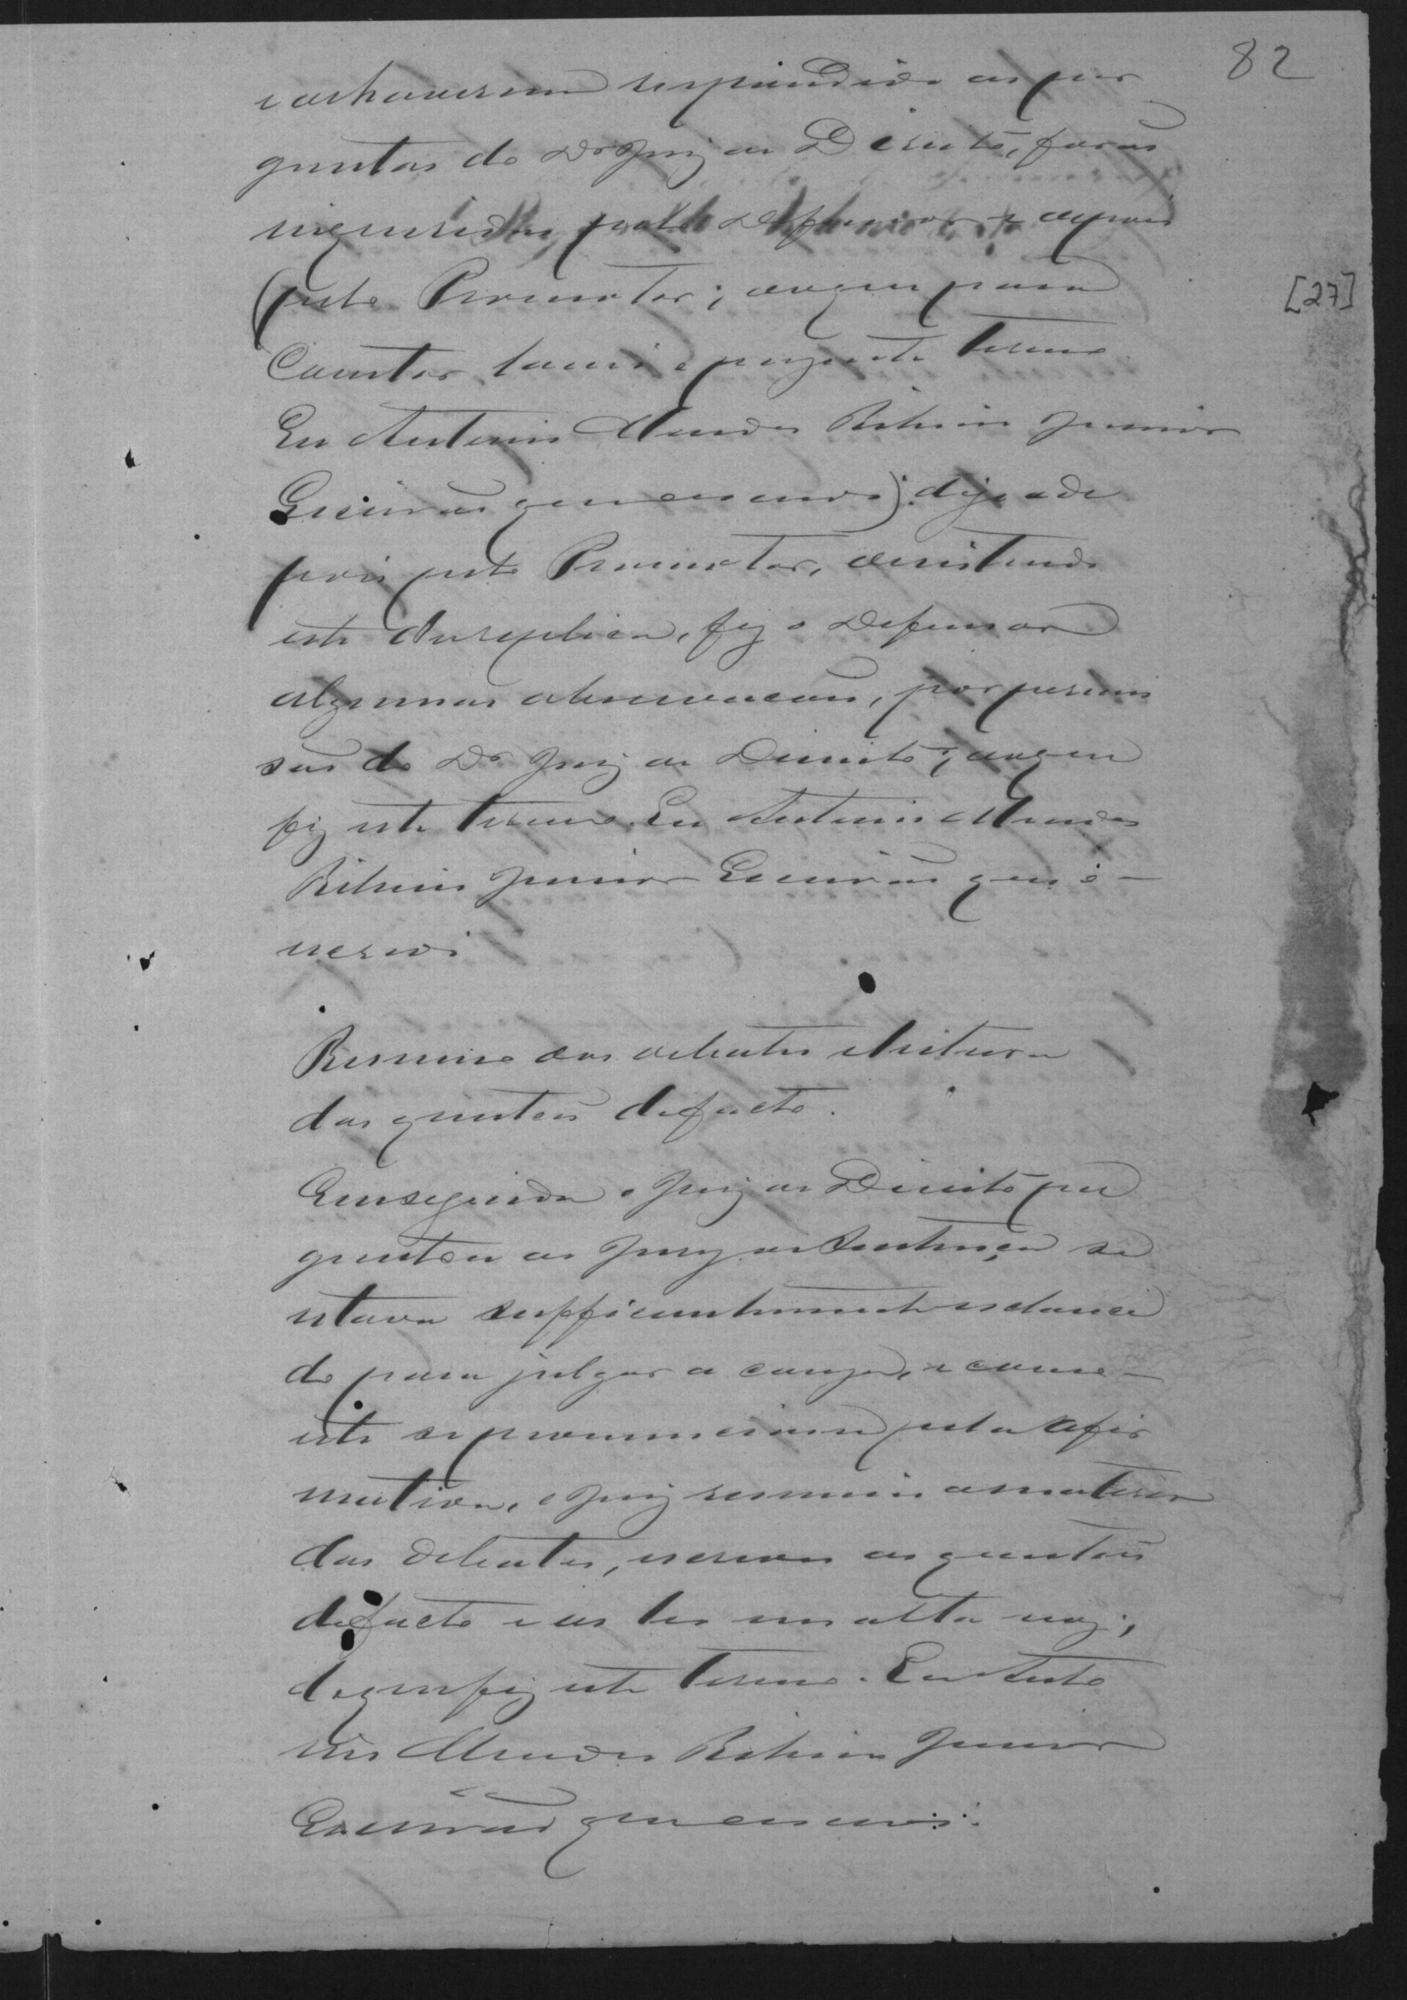 82
e as haverem respondido as per
guntas do Dr Juiz de Direito, foram
inqueridas pelo Defensor e depois
(pelo Promotor; do que para
Constar lavrei o presente termo.
Eu Antonio Mendes Ribeiro Junior
Escrivão que escrevi) digo e de
pois pelo Promotor, desistindo
este da replica, fez o Defensor
algumas observacoens, por permis
são do Dr Juiz de Direito; do que
fiz este termo. Eu Antonio Mendes
Ribeiro Junior Escrivão que o
escrevi
[27]
Resumo dos debates e leitura
das questoes de facto.
Em seguida o Juiz de Direito per
guntou ao Jury de Sentença se
estava sufficientemente esclareci
do para julgar a causa, e como
este se pronunciasse pela afir
mativa, o Juiz resumio a materia
dos debates, escreveo as questoes
de facto e as leo em alta voz;
do que fiz este termo. Eu Anto
nio Mendes Ribeiro Junior
Escrivão que escrevi.